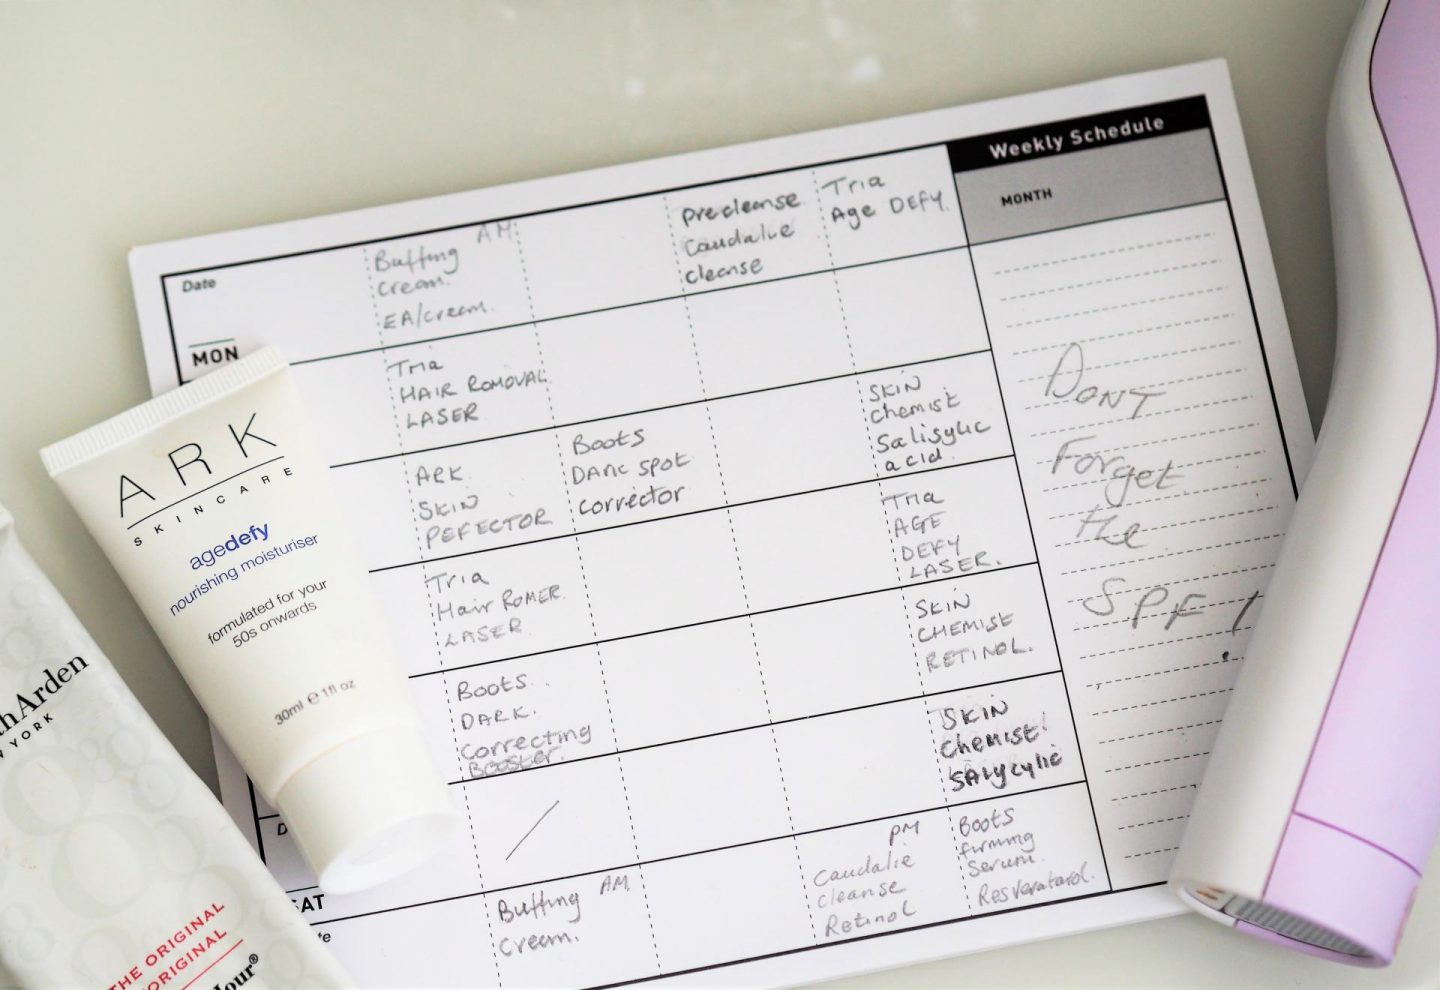 Weekly Schedule
MONTH
Date
MON
AM
Buffing
Cream.
EA/cream.
precleanse
Caudalie
cleanse
Tria
Age DEFY.
Tria
HAIR ROMOVAL
LASER
ARK
SKIN
PEFECTOR
Boots
DARK SPOT
corrector
SKIN
chemist
Salisylic
acid.
Tria
Hair ROMER.
LASER
Tria
AGE
DEFY
LASER.
Boots.
DARK.
Correcting
Booster.
SKIN
CHEMIST
RETINOL.
SKIN
Chemist
SAlycylic
SAT
AM
Buffing
Cream.
PM
Caudalie
cleanse
Retinol
Boots
firming
Serum
Resveratarol.
DONT
Forget
the
SPF!
ARK
SKINCARE
agedefy
nourishing moisturiser
formulated for your
50s onwards
30ml e 1fl oz
thArden
YORK
THE ORIGINAL
ORIGINAL
Hour®